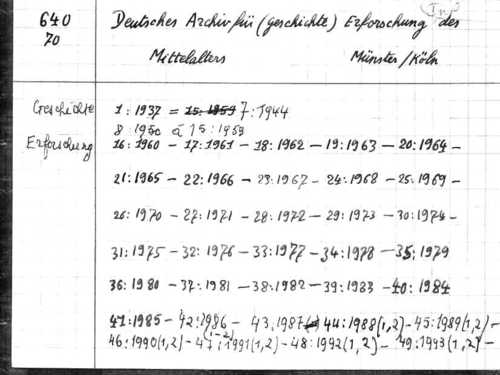 640 Deutsches Archiv für (geschichte) Erforschung des
70
Mittelalters Münster/Köln
Geschichte 1:1937 = 15:1959 7:1944
8 1950 à 15:1959
Erforschung 16:1960 – 17:1961 – 18:1962 – 19:1963 – 20:1964 –
21:1965 – 22:1966 – 23:1967 – 24:1968 – 25:1969 –
26:1970 – 27:1971 – 28:1972 – 29:1973 – 30:1974 –
31:1975 – 32:1976 – 33:1977 – 34:1978 – 35:1979
36:1980 – 37:1981 – 38:1982 – 39:1983 – 40:1984
41:1985 – 42:1986 – 43.1987 44:1988(1,2) – 45:1989(1,2) –
46:1990(1,2) – 47:1991(1,2) – 48:1992(1,2) – 49:1993(1,2) –